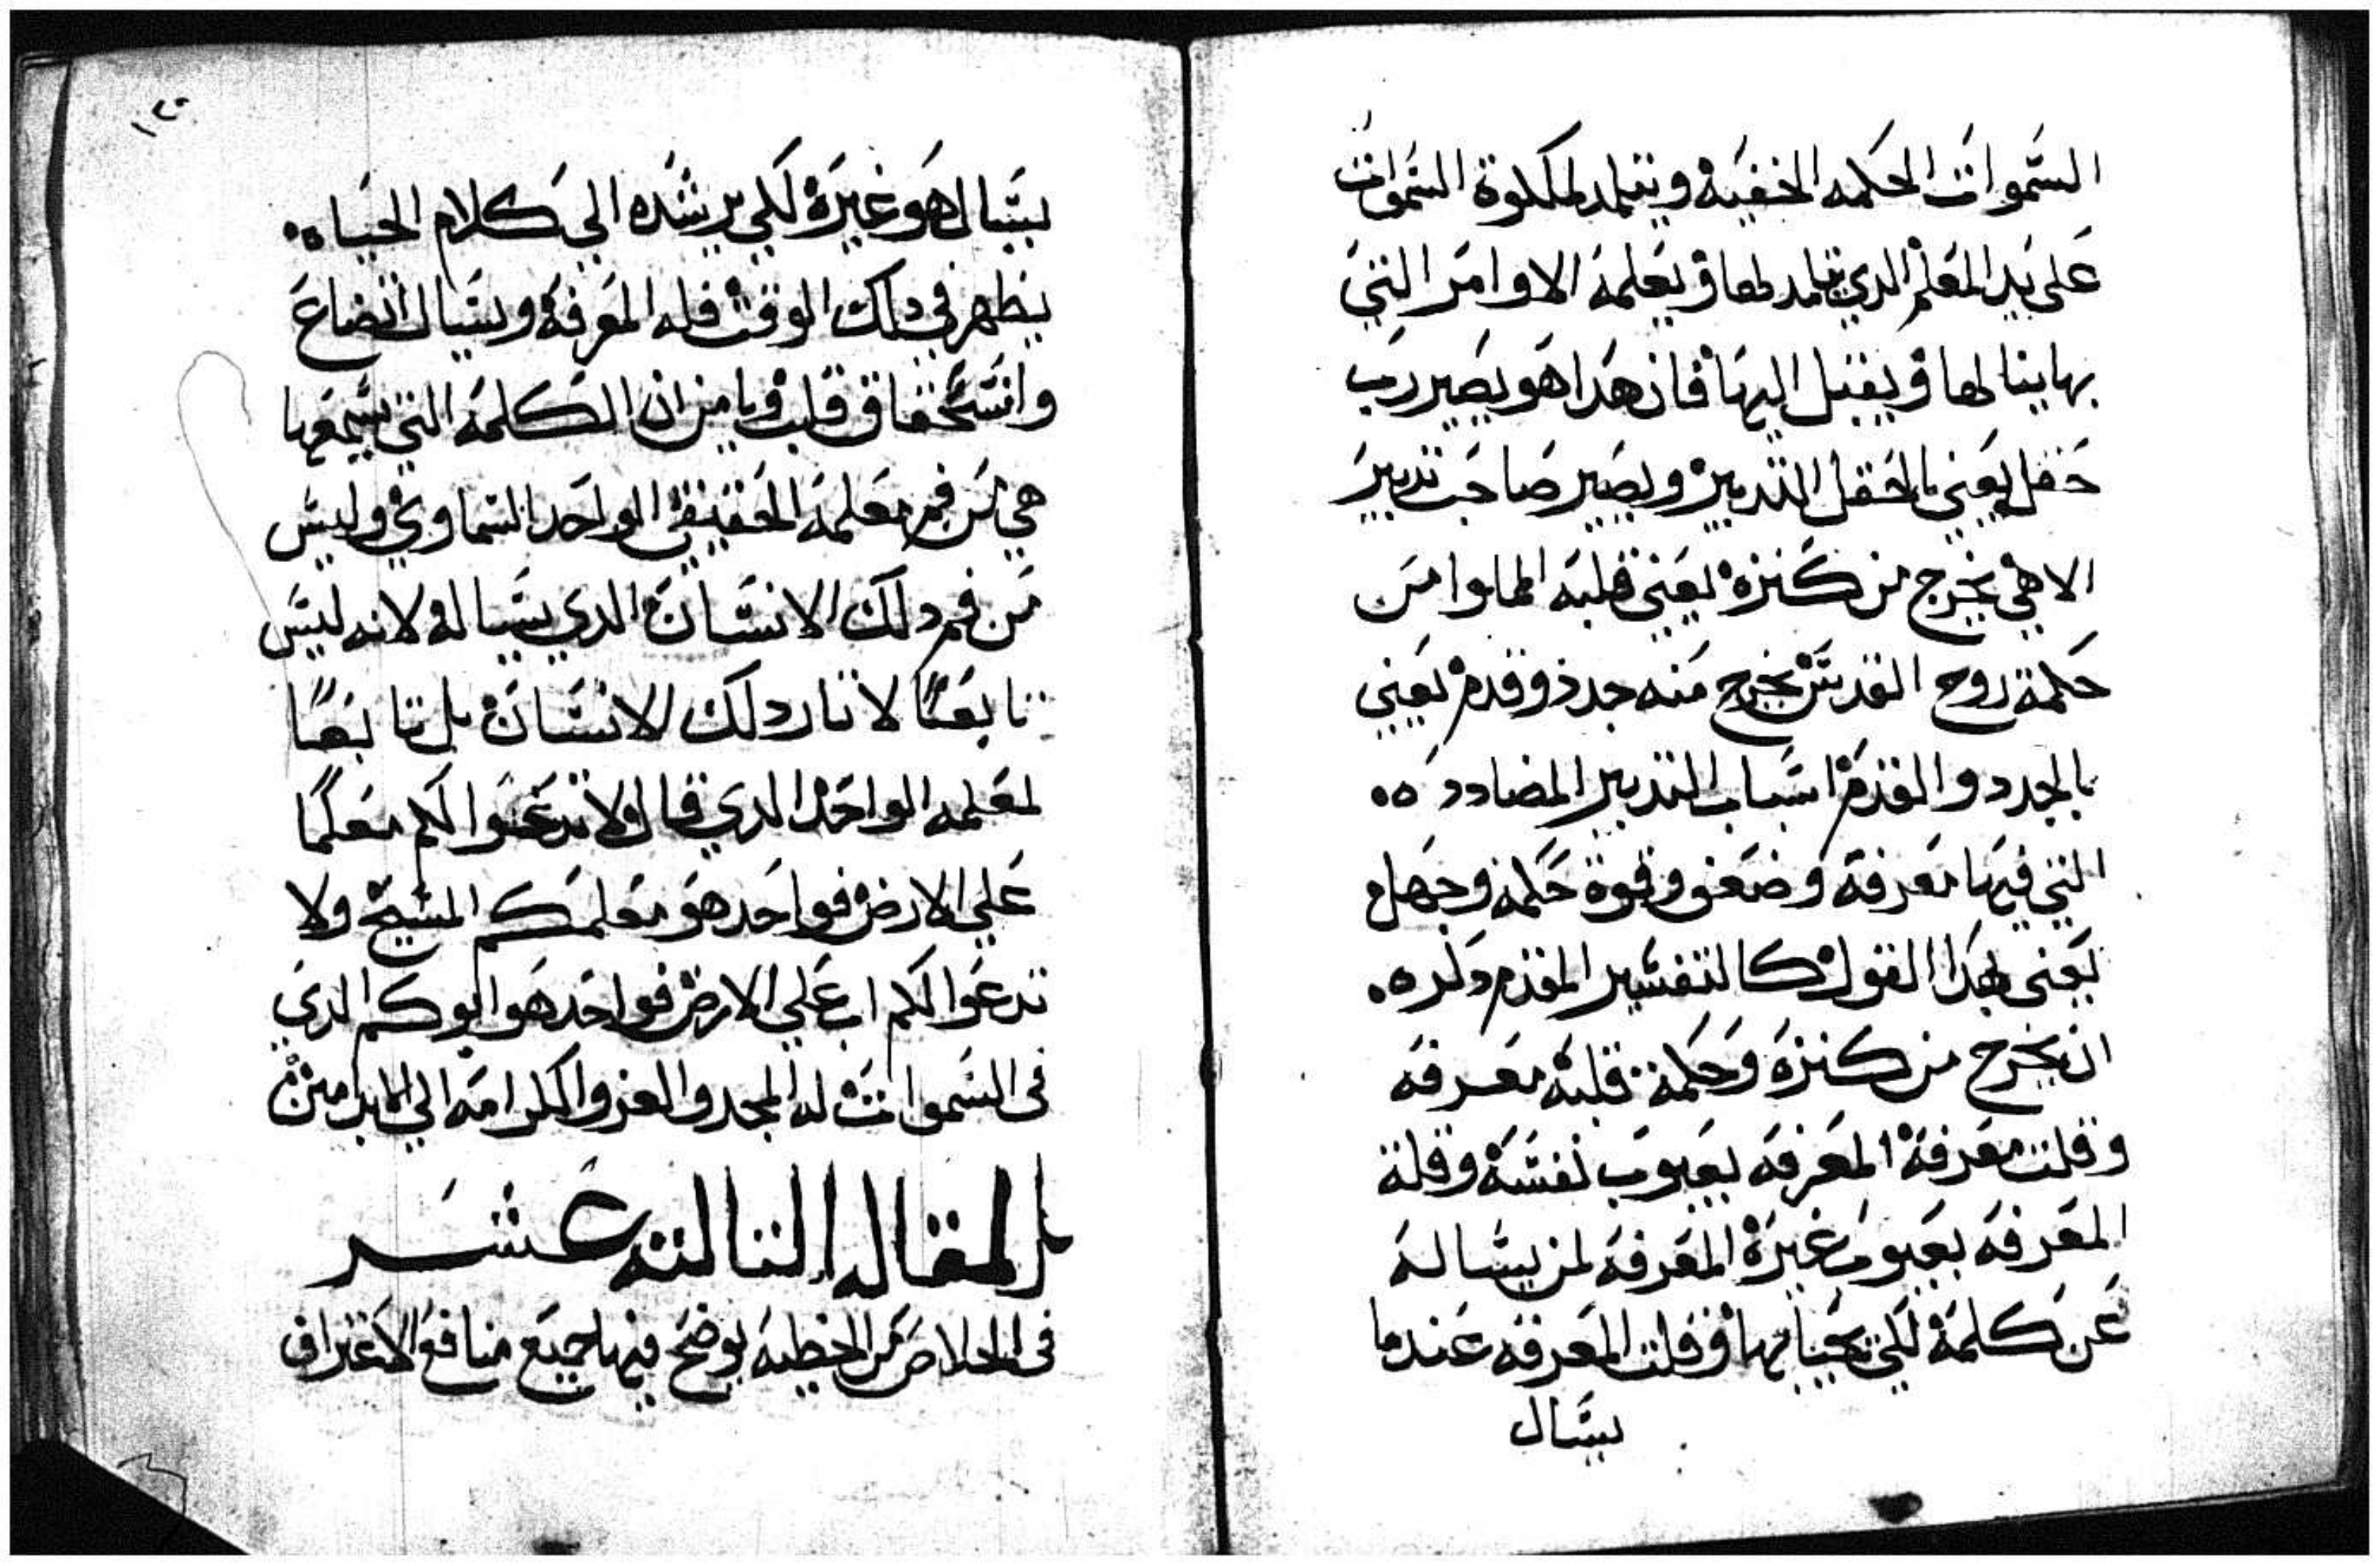 السموات الحكمه الخفيه ويتلمد لملكوة السموات
على يد المعلم الدي تلمد لها ويعلمه الاوامر التي
بها ينالها ويقبل اليها فان هدا هو يصير رب
حقل يعني بالحقل التدبير ويصير صاحب تدبير
الاهي يخرج من كنزه يعني قلبه المملوا من
حكمة روح القدس يخرج منه جدد وقدم يعني
بالجدد والقدم اسباب التدبير المضادده
التي فيها معرفه وضعف وقوة حكمه وجهل
يعني بهدا القول كالتفسير المقدم دكره
ان يخرج من كنزه وحكمة قلبه معرفه
وقلت معرفة المعرفه بعيوب نفسه وقلة
المعرفه بعيوب غيره المعرفه لمن يساله
عن كلمه لكي يحيا بها وقلت المعرفه عندما
يسال
١٢٥
يسال هو غيره لكي يرشده الي كلام الحياه
يظهر في دلك الوقت قله المعرفه ويسال اتضاع
وانسحقاق قلب وبامزان الكلمه التي يسمعها
هي من فم معلمه الحقيقي الواحد السماوي وليس
من فم دلك الانسان الدي يساله لانه ليس
تابعًا لاتار دلك الانسان بل تابعًا
لمعلمه الواحد الدي قال لا تدعوا لكم معلمًا
علي الارض فواحد هو معلمكم المسيح ولا
تدعوا لكم اب علي الارض فواحد هو ابوكم الدي
في السموات له المجد والعز والكرامه الي الابد امين
المقاله التالته عشر
في الخلاص من الخطيه يوضح فيها جميع منافع الاعتراف